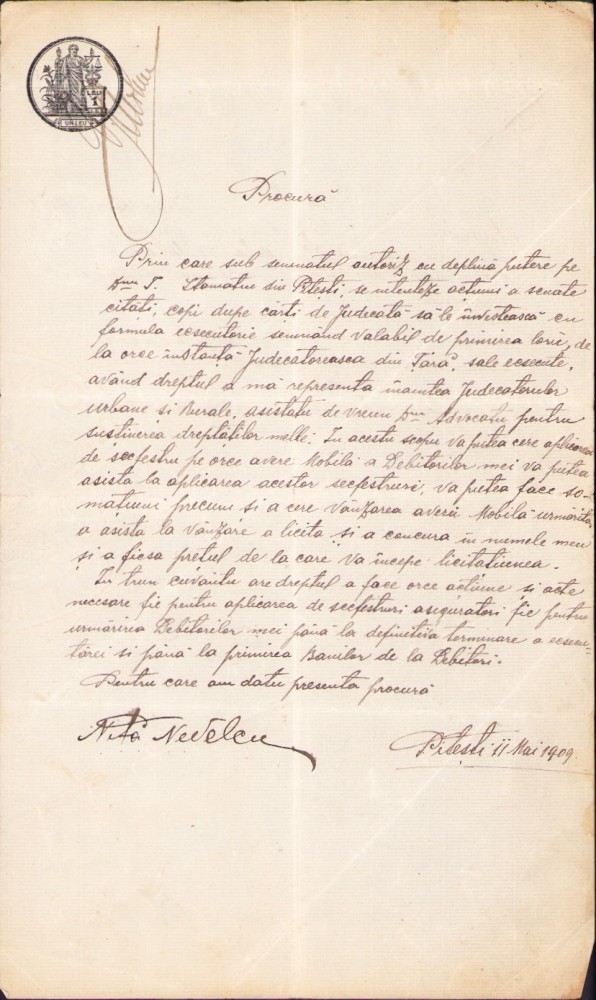 UN LEU
Procură
Prin care sub semnatul autoriz cu deplină putere pe
Dnu T. Stamatiu din Pitești, se intenteze acțiuni a scoate
citați, copi dupe cărți de Judecată să le învestească cu
formula ecsecutorie semnând valabil de primirea loru, de
la orce instanță Judecătoreasca din Țară, sale ecsecute,
având dreptul a mă representa înaintea Judecatorielor
urbane si Rurale, asistatu de vreun Dnu Advocatu pentru
susținerea drepților melle. In acestu scopu va putea cere aplicarea
de secfestru pe orce avere Mobilă a Debitorilor mei va putea
asista la aplicarea acestor secfestruri, va putea face so-
mațiuni precum si a cere vânzarea averii Mobilă urmărită
a asista la vânzare a licita și a concura în numele meu
și a ficsa prețul de la care va începe licitatiunea.
In trun cuvântu are dreptul a face orce acțiune și acte
necesare fie pentru aplicarea de secfestruri asiguratori fie pentru
urmărirea Debitorilor mei până la definitiva terminare a ecsecu-
tărei si până la primirea Banilor de la Debitori.
Pentru care am datu presenta procură
Niță Nedelcu
Pitești 11 Mai 1909.